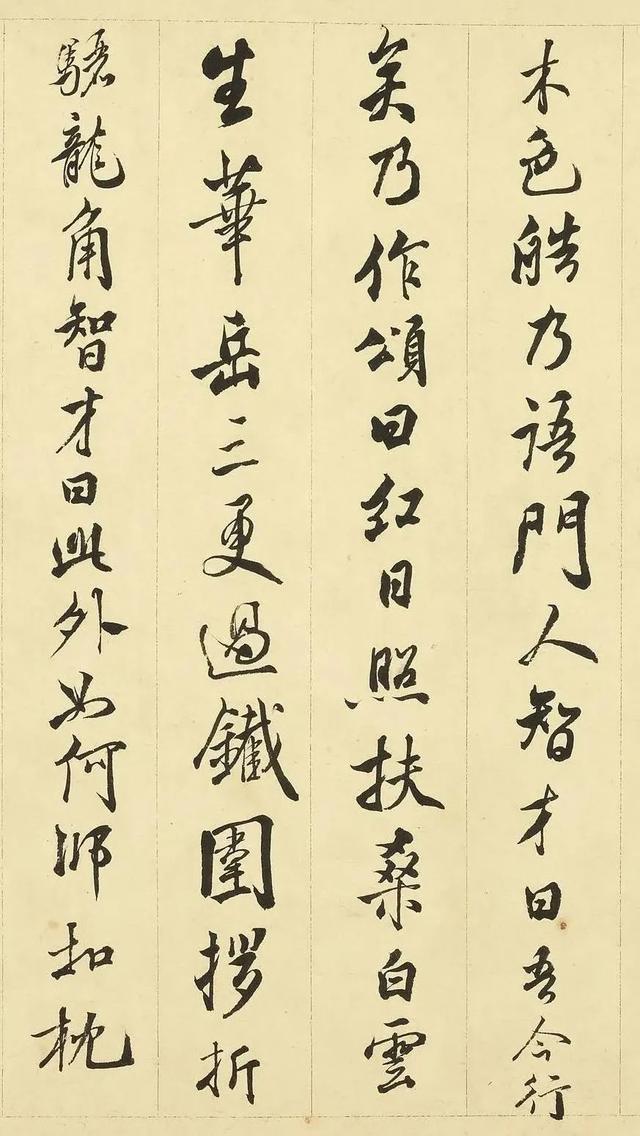 木色皓乃語門人智才曰吾今行
矣乃作頌曰紅日照扶桑白雲
生華岳三更過鐵圍拶折
驪龍角智才曰此外如何師扣枕